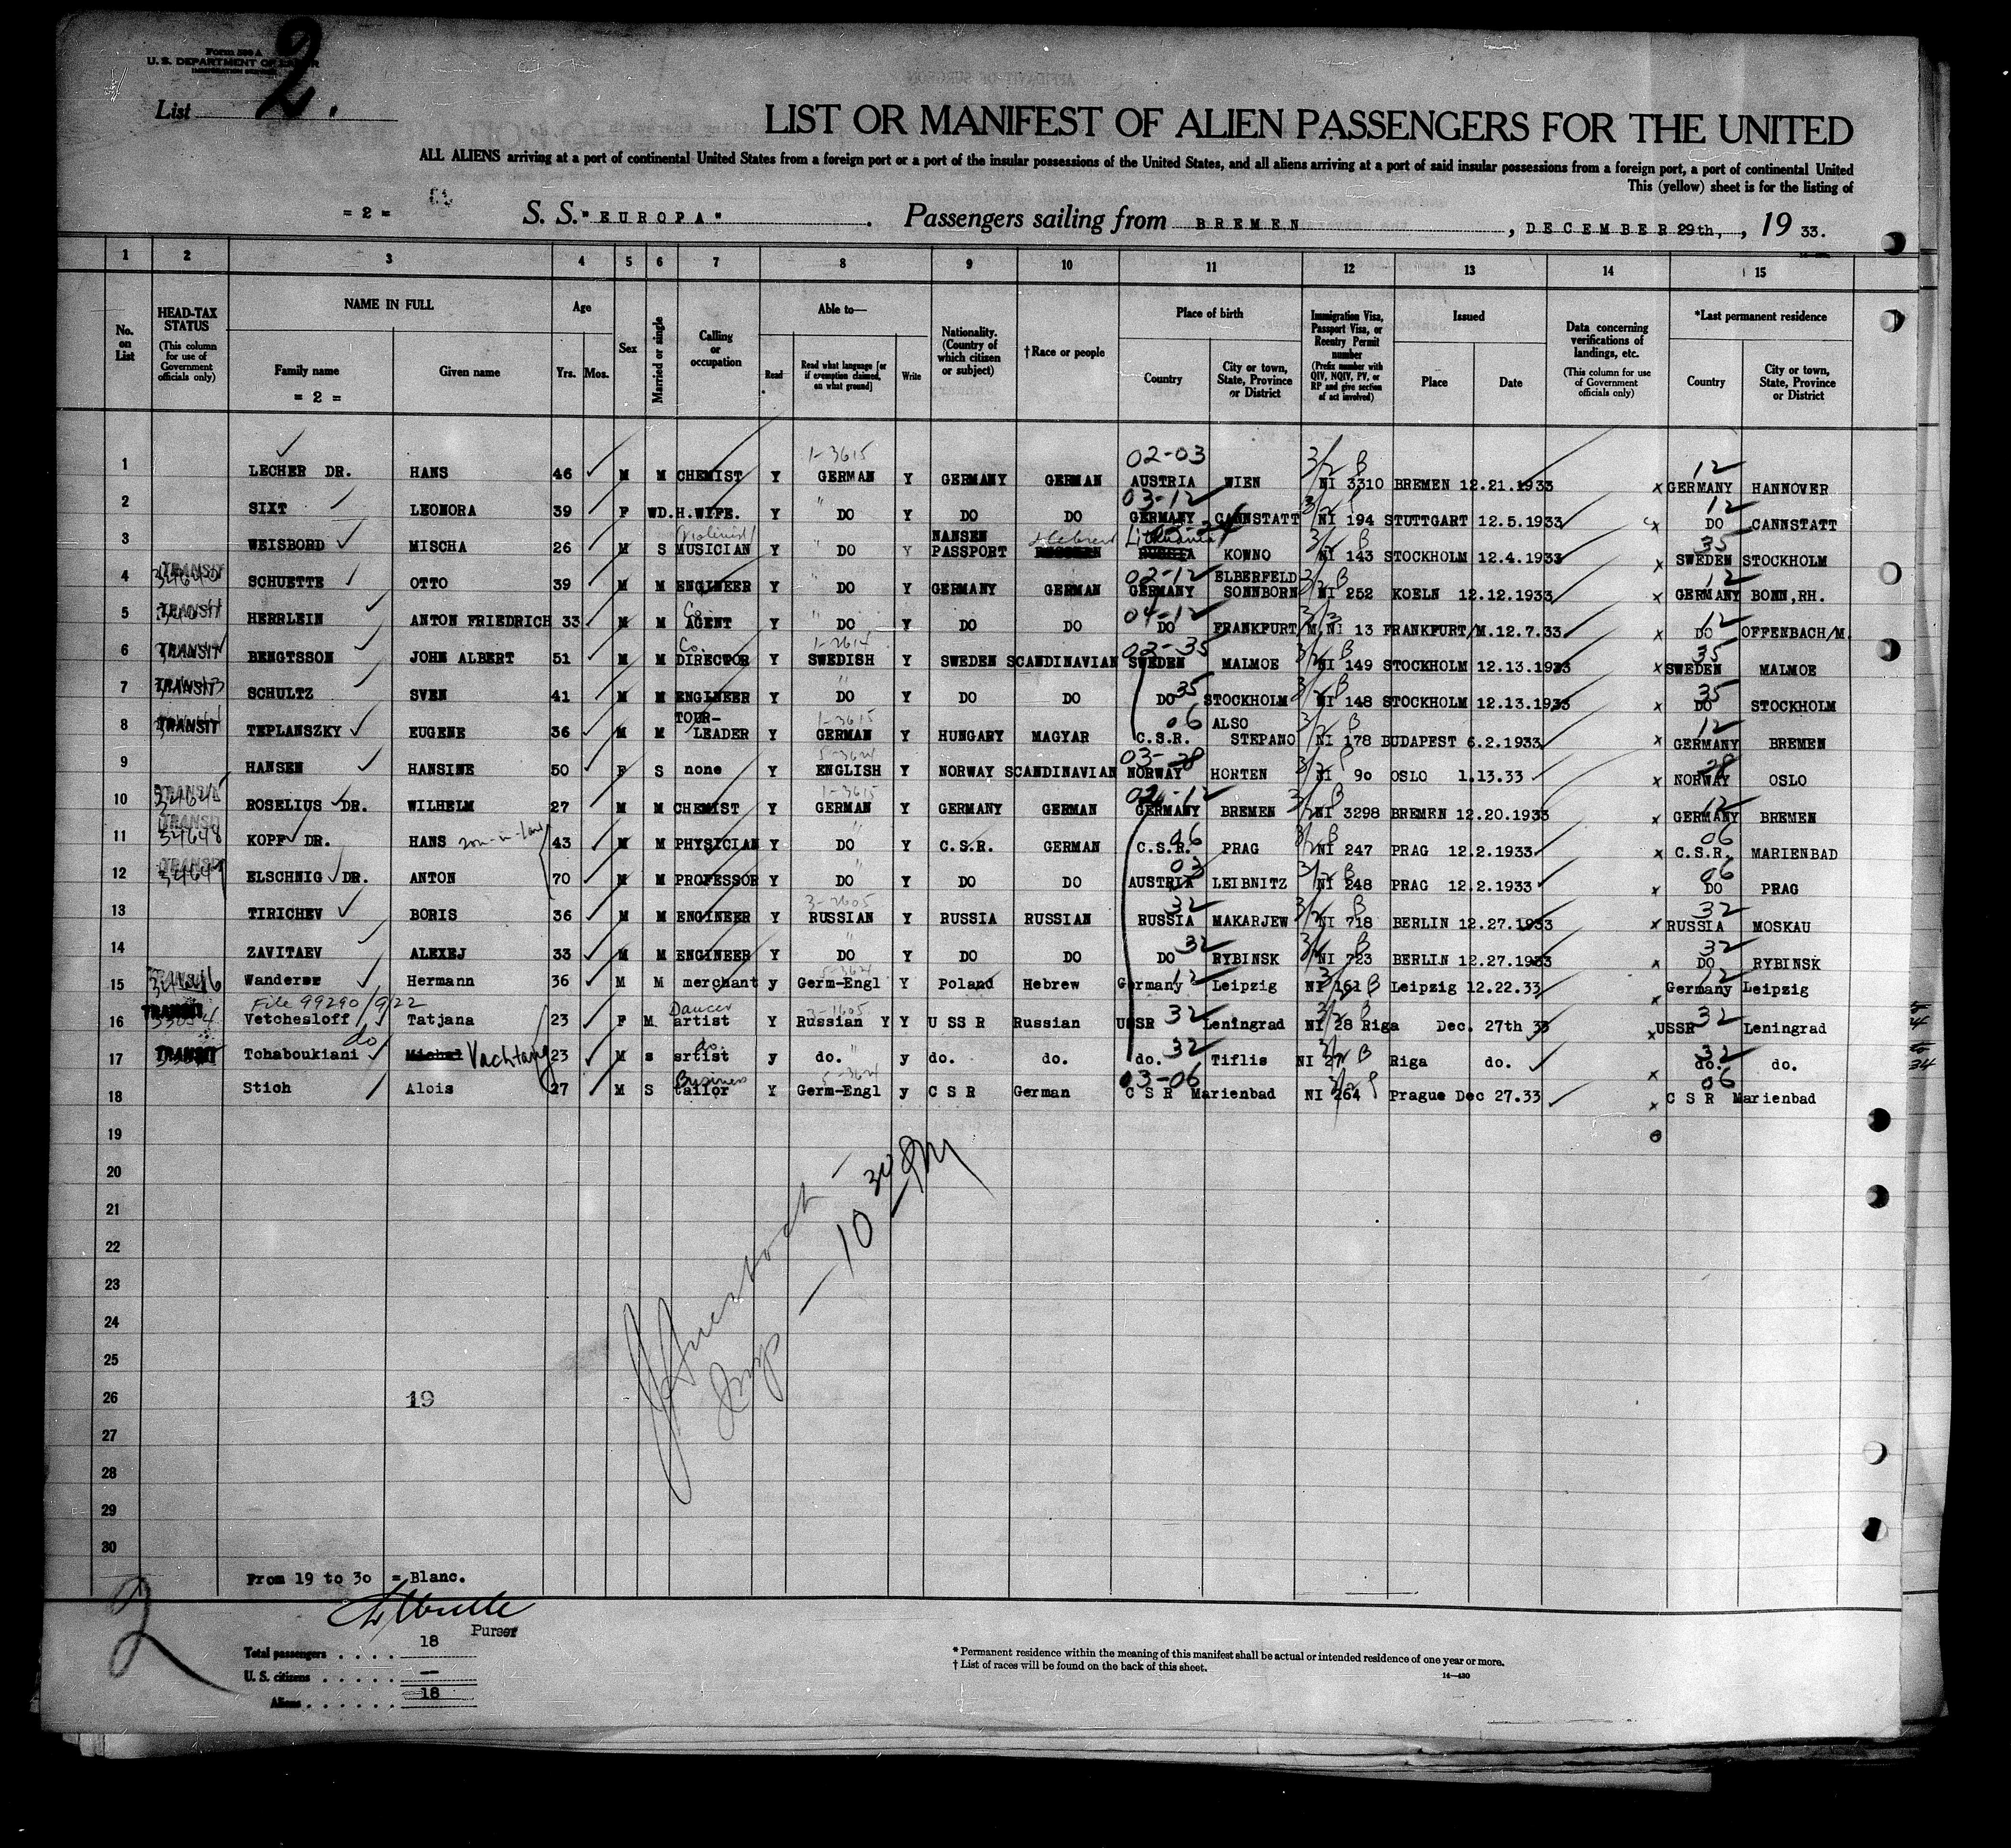 Form 500 A
U. S. DEPARTMENT OF LABOR
IMMIGRATION SERVICE
List 2.
LIST OR MANIFEST OF ALIEN PASSENGERS FOR THE UNITED
ALL ALIENS arriving at a port of continental United States from a foreign port or a port of the insular possessions of the United States, and all aliens arriving at a port of said insular possessions from a foreign port, a port of continental United
This (yellow) sheet is for the listing of
= 2 = S. S. "EUROPA" . Passengers sailing from BREMEN , DECEMBER 29th, , 19 33.
1 2 3 4 5 6 7 8 9 10 11 12 13 14 15
No. on List
HEAD-TAX STATUS (This column for use of Government officials only)
NAME IN FULL
Family name
= 2 =
Given name
Age
Yrs. Mos.
Sex
Married or single
Calling or occupation
Able to—
Read
Read what language [or if exemption claimed, on what ground]
Write
Nationality. (Country of which citizen or subject)
†Race or people
Place of birth
Country
City or town, State, Province or District
Immigration Visa, Passport Visa, or Reentry Permit number (Prefix number with QIV, NQIV, PV, or RP and give section of act involved)
Issued
Place
Date
Data concerning verifications of landings, etc. (This column for use of Government officials only)
*Last permanent residence
Country
City or town, State, Province or District
1 LECHER DR. HANS 46 M M CHEMIST Y 1-3615 GERMAN Y GERMANY GERMAN 02-03 AUSTRIA WIEN 3/2 B NI 3310 BREMEN 12.21.1933 x 12 GERMANY HANNOVER
2 SIXT LEONORA 39 F WD. H.WIFE. Y " DO Y DO DO 03-12 GERMANY CANNSTATT 3/2 NI 194 STUTTGART 12.5.1933 x 12 DO CANNSTATT
3 WEISBORD MISCHA 26 M S Violinist MUSICIAN Y " DO Y NANSEN PASSPORT Hebrew Lithuania RUSSIA KOWNO 3/2 B NI 143 STOCKHOLM 12.4.1933 x 35 SWEDEN STOCKHOLM
4 TRANSIT SCHUETTE OTTO 39 M M ENGINEER Y DO Y GERMANY GERMAN 02-12 GERMANY ELBERFELD SONNBORN 3/2 B NI 252 KOELN 12.12.1933 x 12 GERMANY BONN,RH.
5 TRANSIT HERRLEIN ANTON FRIEDRICH 33 M M Co. AGENT Y " DO Y DO DO 04-12 DO FRANKFURT/M. NI 13 FRANKFURT/M. 12.7.33 x 12 DO OFFENBACH/M.
6 TRANSIT BENGTSSON JOHN ALBERT 51 M M Co. DIRECTOR Y 1-2614 SWEDISH Y SWEDEN SCANDINAVIAN 02-35 SWEDEN MALMOE 3/2 B NI 149 STOCKHOLM 12.13.1933 x 35 SWEDEN MALMOE
7 TRANSIT SCHULTZ SVEN 41 M M ENGINEER Y " DO Y DO DO DO 35 STOCKHOLM 3/2 B NI 148 STOCKHOLM 12.13.1933 x 35 DO STOCKHOLM
8 TRANSIT TEPLANSZKY EUGENE 36 M M TOUR-LEADER Y 1-3615 GERMAN Y HUNGARY MAGYAR 06 C.S.R. ALSO STEPANO 3/2 B NI 178 BUDAPEST 6.2.1933 x 12 GERMANY BREMEN
9 HANSEN HANSINE 50 F S none Y 5-3624 ENGLISH Y NORWAY SCANDINAVIAN 03-28 NORWAY HORTEN 3/2 B NI 90 OSLO 1.13.33 x 28 NORWAY OSLO
10 TRANSIT 34645 ROSELIUS DR. WILHELM 27 M M CHEMIST Y 1-3615 GERMAN Y GERMANY GERMAN 02-12 GERMANY BREMEN 3/2 B NI 3298 BREMEN 12.20.1933 x 12 GERMANY BREMEN
11 TRANSIT 34648 KOPF DR. HANS son-in-law 43 M M PHYSICIAN Y " DO Y C.S.R. GERMAN 06 C.S.R. PRAG 3/2 B NI 247 PRAG 12.2.1933 x 06 C.S.R. MARIENBAD
12 TRANSIT 34647 ELSCHNIG DR. ANTON 70 M M PROFESSOR Y " DO Y DO DO 03 AUSTRIA LEIBNITZ 3/2 B NI 248 PRAG 12.2.1933 x 06 DO PRAG
13 TIRICHEV BORIS 36 M M ENGINEER Y 3-2605 RUSSIAN Y RUSSIA RUSSIAN 32 RUSSIA MAKARJEW 3/2 B NI 718 BERLIN 12.27.1933 x 32 RUSSIA MOSKAU
14 ZAVITAEV ALEXEJ 33 M M ENGINEER Y " DO Y DO DO DO 32 RYBINSK 3/2 B NI 723 BERLIN 12.27.1933 x 32 DO RYBINSK
15 TRANSIT 34646 Wanderer Hermann 36 M M merchant y 5-3624 Germ-Engl Y Poland Hebrew Germany 12 Leipzig NI 161 B Leipzig 12.22.33 x 12 Germany Leipzig
File 99290/922
16 TRANSIT Vetchesloff Tatjana 23 F M Dancer artist Y Russian Y Y U SS R Russian USSR 32 Leningrad NI 28 Riga Dec. 27th 33 x USSR 32 Leningrad
17 TRANSIT do Tchaboukiani Michal Vachtang 23 M s do. srtist y do. " y do. do. do. 32 Tiflis NI 27 B Riga do. x 32 do. do.
18 Stich Alois 27 M S Business tailor Y 5-3624 Germ-Engl y C S R German 03-06 C S R Marienbad NI 264 Prague Dec 27.33 x 06 C S R Marienbad
19
20
21
22
23
24
25
26 19
27
28
29
30
Insp — 10 30 PM
From 19 to 30 = Blanc.
Purser
2
Total passengers . . . . 18
U. S. citizens . . . . . —
Aliens . . . . . . 18
* Permanent residence within the meaning of this manifest shall be actual or intended residence of one year or more.
† List of races will be found on the back of this sheet.
14—430